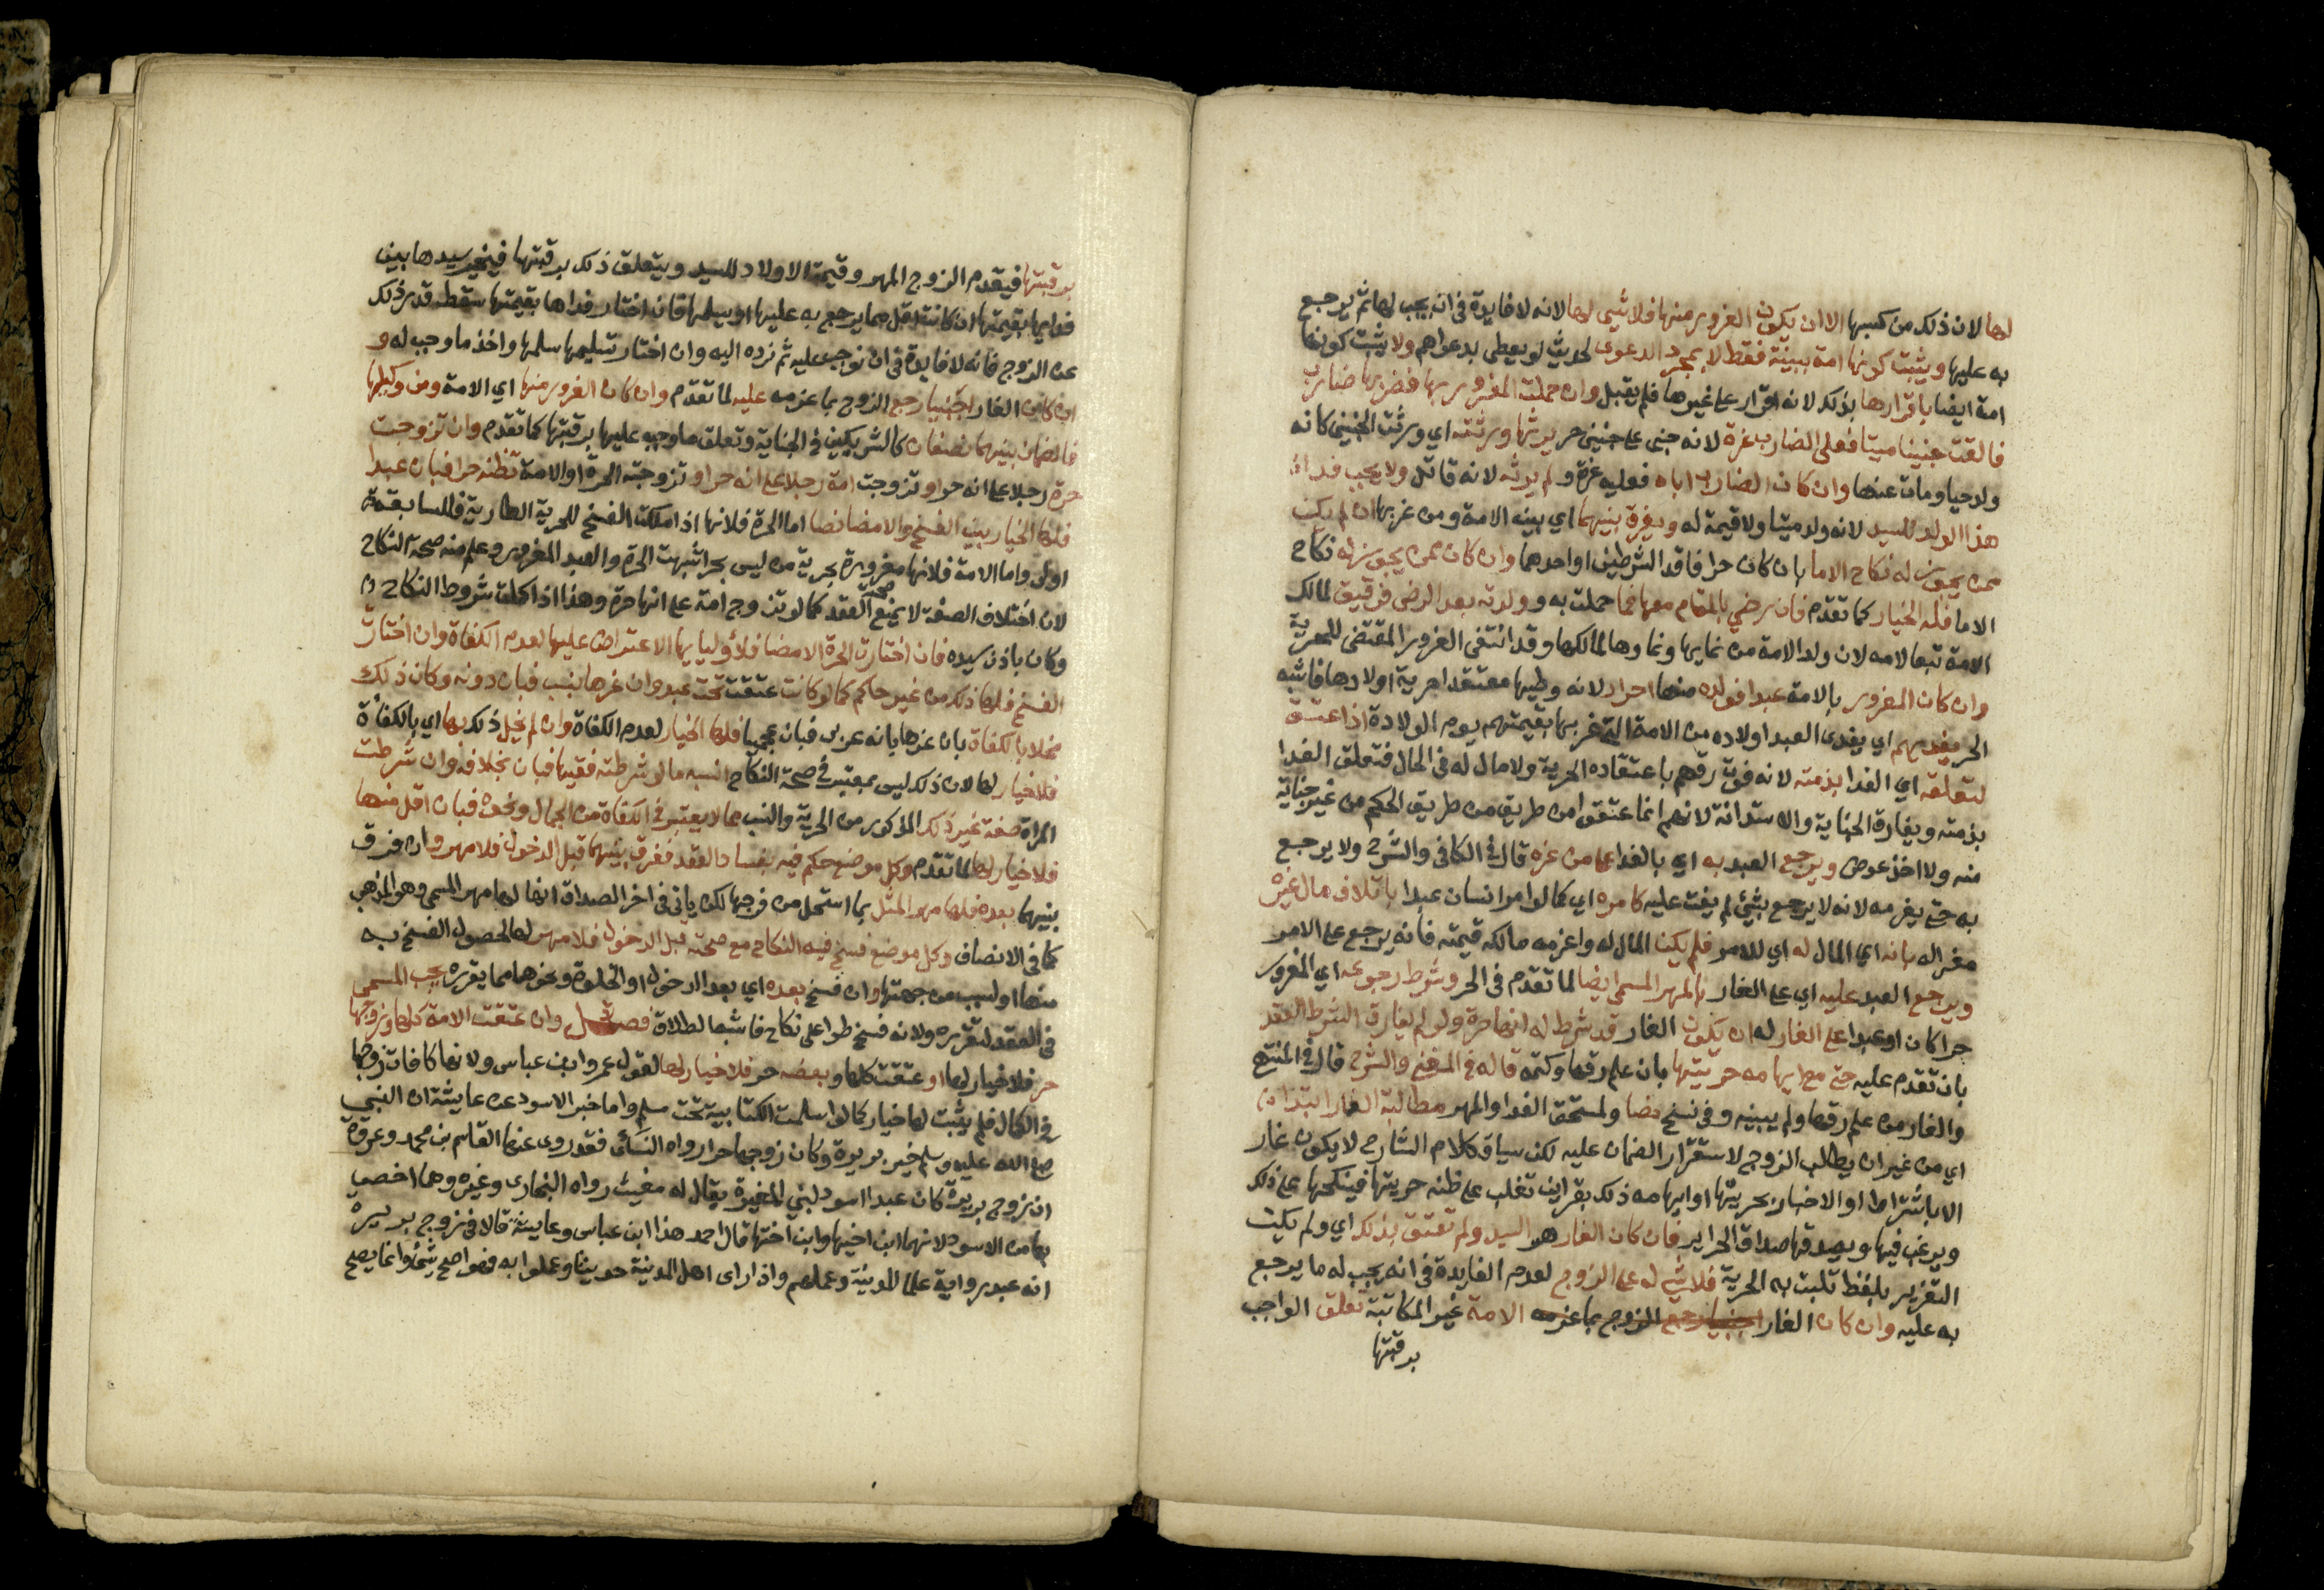 لها لان ذلك من كسبها الا ان يكون الغرور منها فلا شي لها لانه لا فايدة في انه يجب لها ثم يرجع
به عليها ويثبت كونها امة ببينة فقط لا بمجرد الدعوى لحديث لو يعطى بدعواهم ولا يثبت كونها
امة ايضا باقرارها بذلك لانه اقرار على غيرها فلم يقبل وان حملت المغرور بها فضربها ضارب
فالقت جنينا ميتا فعلى الضارب غرة لانه جنى على جنين حر يرثها ورثته اي ورثت الجنين كانه
ولد حيا ومات عنها وان كان الضارب اباه فعليه غرة ولم يرثه لانه قاتل ولا يجب فداء
هذا الولد للسيد لانه ولد ميتا ولا قيمة له ويفرق بينهما اي بين الامة ومن غر بها ان لم يكن
ممن يجوز له نكاح الاما بان كان حرا فاقد الشرطين او احدهما وان كان ممن يجوز له نكاح
الاما فله الخيار كما تقدم فان رضي بالمقام معها فما حملت به وولدته بعد الرضى فرقيق لمالك
الامة تبعا لامه لان ولد الامة من نمايها ونماوها لمالكها وقد انتفى الغرور المقتضى للحرية
وان كان المغرور بالامة عبدا فولده منها احرار لانه وطيها معتقدا حرية اولادها فاشبه
الحر يفديهم اي يفدى العبد اولاده من الامة التي غر بها بقيمتهم يوم الولادة اذا عتق
لتعلقه اي الفدا بذمته لانه فوت رقهم باعتقاده الحرية ولا مال له في الحال فتعلق الفدا
بذمته ويفارق الجناية والاستدانة لانهم انما عتقوا من طريق من طريق الحكم من غير جناية
منه ولا اخذ عوض ويرجع العبد به اي بالفدا على من غره قال في الكافي والشرح ولا يرجع
به حتى يغرمه لانه لا يرجع بشي لم يفت عليه كامره اي كما لو امر انسان عبدا باتلاف مال غيره
مغر اله بانه اي المال له اي للامر فلم يكن المال له واغرمه مالكه قيمته فانه يرجع على الامر
ويرجع العبد عليه اي على الغار بالمهر المسمى ايضا لما تقدم في الحر وشرط رجوعه اي المغرور
حرا كان او عبدا على الغار له ان يكون الغار قد شرط له انها حرة ولو لم يقارن الشرط العقد
بان تقدم عليه حتى مع ايهامه حريتها بان علم رقها وكتمه قاله في المغني والشرح قال في المنتهى
والغار من علم رقها ولم يبينه وفي نسخ نصا ولمستحق الفدا والمهر مطالبة الغار ابتداء
اي من غير ان يطالب الزوج لاستقرار الضمان عليه لكن سياق كلام الشارح لا يكون غار
الا باشتراط او الاخبار بحريتها او ايهامه ذلك بقراين تغلب على ظنه حريتها فينكحها على ذلك
ويرغب فيها ويصدقها صداق الحراير فان كان الغار هو السيد ولم تعتق بذلك اي ولم يكن
التغرير بلفظ تثبت به الحرية فلا شي له على الزوج لعدم الفايدة في انه يجب له ما يرجع
به عليه وان كان الغار اجنبيا رجع الزوج بما غرمه الامة غير المكاتبة تعلق الواجب
برقبتها
برقبتها فيقدم الزوج المهر وقيمة الاولاد للسيد ويتعلق ذلك برقبتها فيخير سيدها بين
فدايها بقيمتها ان كانت اقل مما يرجع به عليها او يسلمها فان اختار فداها بقيمتها سقط قدر ذلك
عن الزوج فانه لا فايدة في ان نوجب عليه ثم نرده اليه وان اختار تسليمها سلمها واخذ ما وجب له و
ان كان الغار اجنبيا رجع الزوج بما غرمه عليه لما تقدم وان كان الغرور منها اي الامة ومن وكيلها
فالضمان بينهما نصفان كالشريكين في الجناية وتعلق ما وجب عليها برقبتها كما تقدم وان تزوجت
حرة رجلا على انه حر او تزوجت امة رجلا على انه حر او تزوجته الحرة او الامة تظنه حرا فبان عبدا
فلها الخيار بين الفسخ والامضا نصا اما الحرة فلانها اذا ملكت الفسخ للحرية الطارية فللسابقة
اولى واما الامة فلانها مغرورة بحرية من ليس بحر اشبهت الحرة والعبد المغرور وعلم منه صحة النكاح
لان اختلاف الصفة لا يمنع صحة العقد كما لو تزوج امة على انها حرة وهذا اذا كملت شروط النكاح
وكان باذن سيده فان اختارت الحرة الامضا فلاوليايها الاعتراض عليها لعدم الكفاة وان اختارت
الفسخ فلها ذلك من غير حاكم كما لو كانت عتقت تحت عبد وان غرها بنسب فبان دونه وكان ذلك
مخلا بالكفاة بان غرها بانه عربي فبان عجميا فلها الخيار لعدم الكفاة وان لم يخل ذلك بها اي بالكفاة
فلا خيار لها لان ذلك ليس بمعتبر في صحة النكاح اشبه ما لو شرطته فقيها فبان بخلافه وان شرطت
المراة صفة غير ذلك المذكور من الحرية والنسب مما لا يعتبر في الكفاة من الجمال ونحوه فبان اقل منها
فلا خيار لها لما تقدم وكل موضع حكم فيه بفساد العقد ففرق بينهما قبل الدخول فلا مهر وان فرق
بينهما بعده فلها مهر المثل بما استحل من فرجها لكن ياتي في اخر الصداق انها لها مهر المسمى وهو المذهب
كما في الانصاف وكل موضع فسخ فيه النكاح مع صحته قبل الدخول فلا مهر لها لحصول الفسخ به
منها او لسبب من جهتها وان فسخ بعده اي بعد الدخول او الخلوة ونحوهما مما يقرره يجب المسمى
في العقد لتقرره ولانه فسخ طرا على نكاح فاشبه الطلاق فصل وان عتقت الامة كلها وزوجها
حر فلا خيار لها او عتقت كلها وبعضه حر فلا خيار لها لقول عمر وابن عباس ولانها كافات زوجها
في الكمال فلم يثبت لها خيار كما لو اسلمت الكتابية تحت مسلم واما خبر الاسود عن عايشة ان النبي
صلى الله عليه وسلم خير بريرة وكان زوجها حرا رواه النساى فقد روى عنها القاسم بن محمد وعروة
ان زوج بريرة كان عبدا اسود لبني المغيرة يقال له مغيث رواه البخارى وغيره وهما اخص
بها من الاسود لانهما ابن اخيها وابن اختها قال احمد هذا ابن عباس وعايشة قالا في زوج بريرة
انه عبد رواية علما المدينة وعملهم واذا راى اهل المدينة حديثا وعملوا به فهو اصح شي وانما يصح